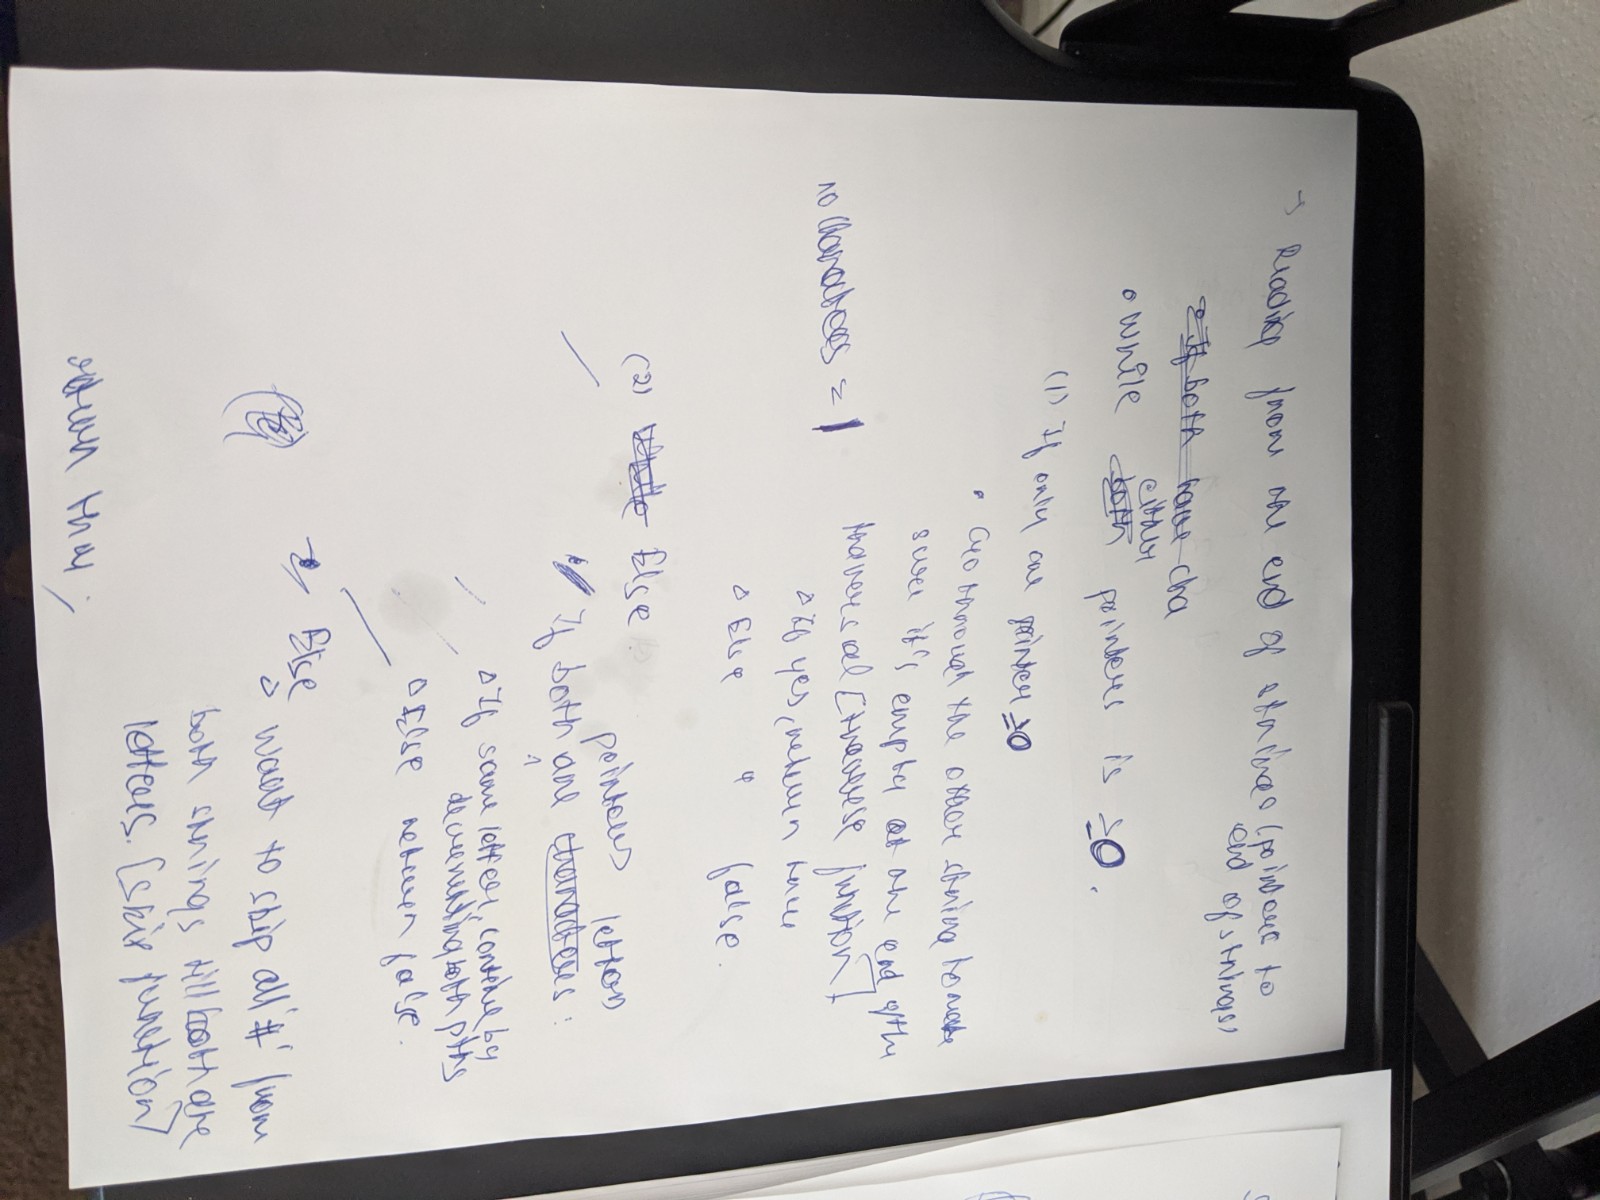 → Reading from the end of strings (pointers to
end of strings)
While either pointers is ≥0.
(1) If only one pointer ≥0
• Go through the other string to make
sure it's empty at the end of the
traversal [traverse function]
no characters = 1
△ If yes, return true
△ Else " false.
(2) Else
pointers letters
If both are characters:
△ If same letter, continue by
decrementing both ptrs
△ Else return false.
Else
△ Want to skip all '#' from
both strings till both are
letters. [skip function]
return true;